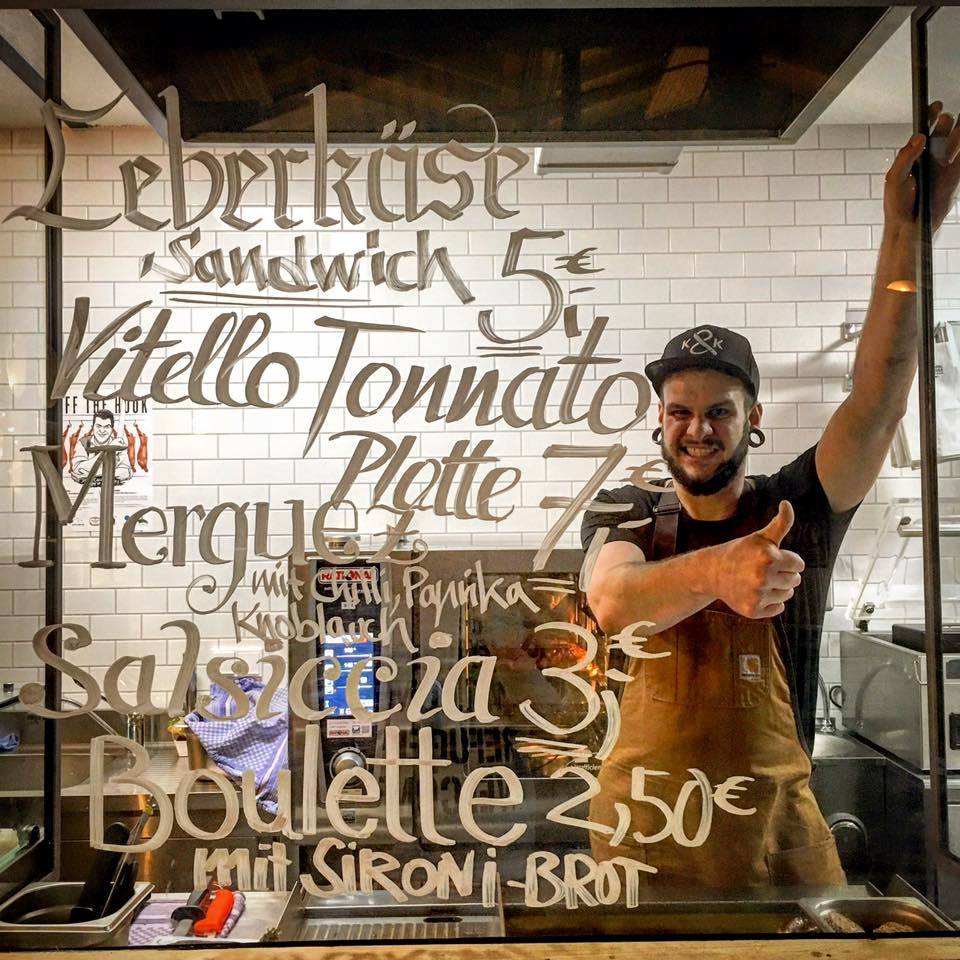 Leberkäse
Sandwich 5,- €
Vitello Tonnato
Platte 7,- €
Merguez
mit Chili, Paprika
Knoblauch
Salsiccia 3,- €
Boulette 2,50 €
mit SiRONi-BROT
K&K
FF THE HOOK
RATIONAL
carhartt